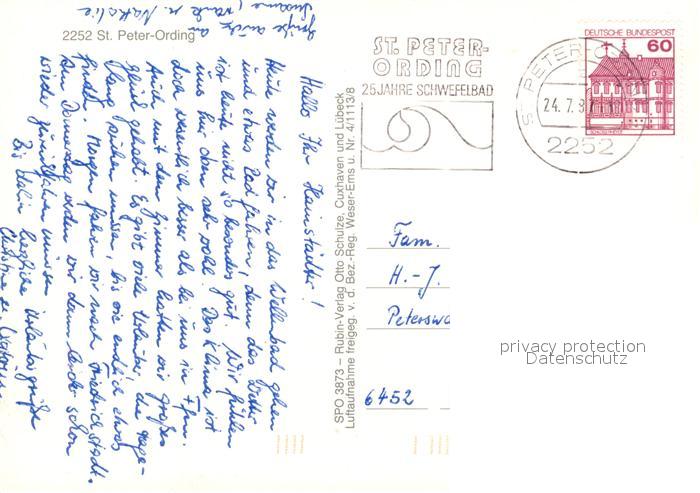 2252 St. Peter-Ording
Hallo Ihr Heinstadter!
Heute werden wir in das Wellenbad gehen
und etwas Rad fahren, denn das Wetter
ist heute nicht so besonders gut. Wir fühlen
uns hier oben sehr wohl. Das Klima ist
doch wesentlich besser als bei uns in
Auch mit dem Zimmer hatten wir großes
Glück gehabt. Es gibt viele Urlauber die tage-
lang suchen müssen, bis sie endlich etwas
finden. Morgen fahren wir nach Friedrichstadt.
Am Donnerstag werden wir dann leider schon
wieder zurückfahren müssen
Bis dahin herzliche Urlaubsgrüße
Grüße auch an
Susanne, u. Nathalie
SPO 3873 – Rubin-Verlag Otto Schulze, Cuxhaven und Lübeck
Luftaufnahme freigeg. v. d. Bez.-Reg. Weser-Ems u. Nr. 4/1113/8
ST. PETER-
ORDING
25 JAHRE SCHWEFELBAD
ST. PETER-O
24.7.87
2252
DEUTSCHE BUNDESPOST
60
Fam.
H.-J.
Petersw
6452
privacy protection
Datenschutz